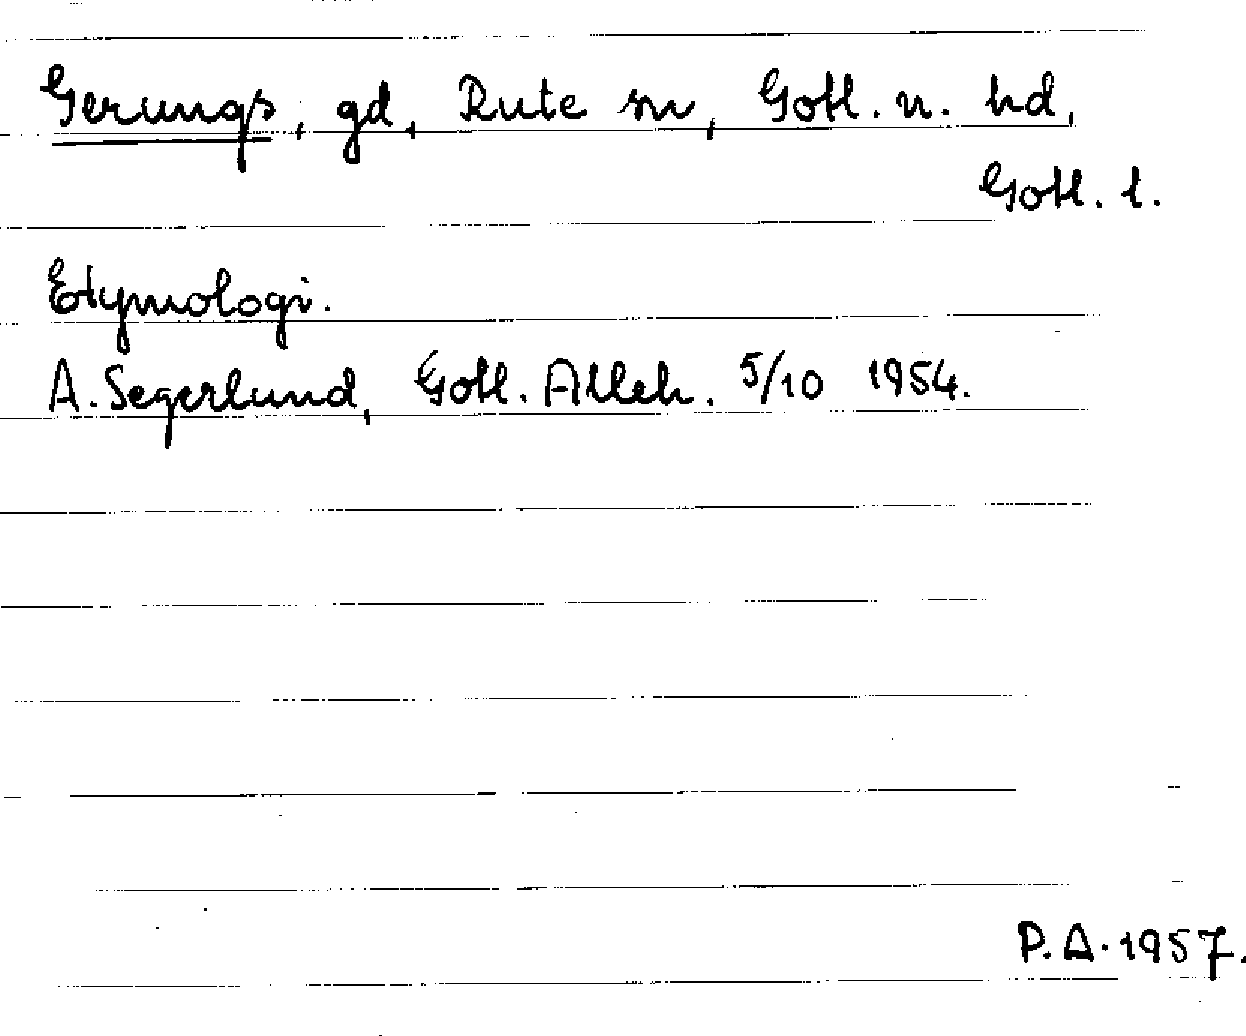 Gerungs, gd, Rute sn, Gotl. n. hd,
Gotl. l.
Etymologi.
A. Segerlund, Gotl. Alleh. 5/10 1954.
P.A. 1957.